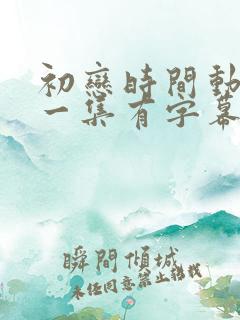 初戀時間動
一集有字幕
瞬間傾城
未任同意禁止轉載